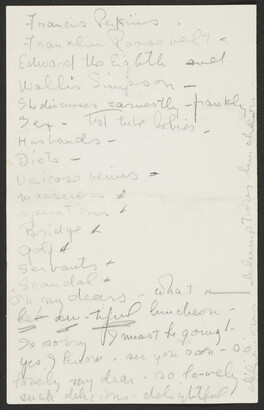 Francis Perkins.
Franklin Roosevelt -
Edward the Eighth and
Wallis Simpson -
She discusses earnestly - frankly
Sex - Test tube babies -
Husbands -
Diets -
Varicose veins -
masseuses
operations
Bridge
Golf
Servants
Scandal -
Oh my dears - what a
beu-tiful luncheon -
So sorry I must be going!
yes I know - see you soon - so
lovely my dear - so lo-vely
such delicious - delightful
luncheon